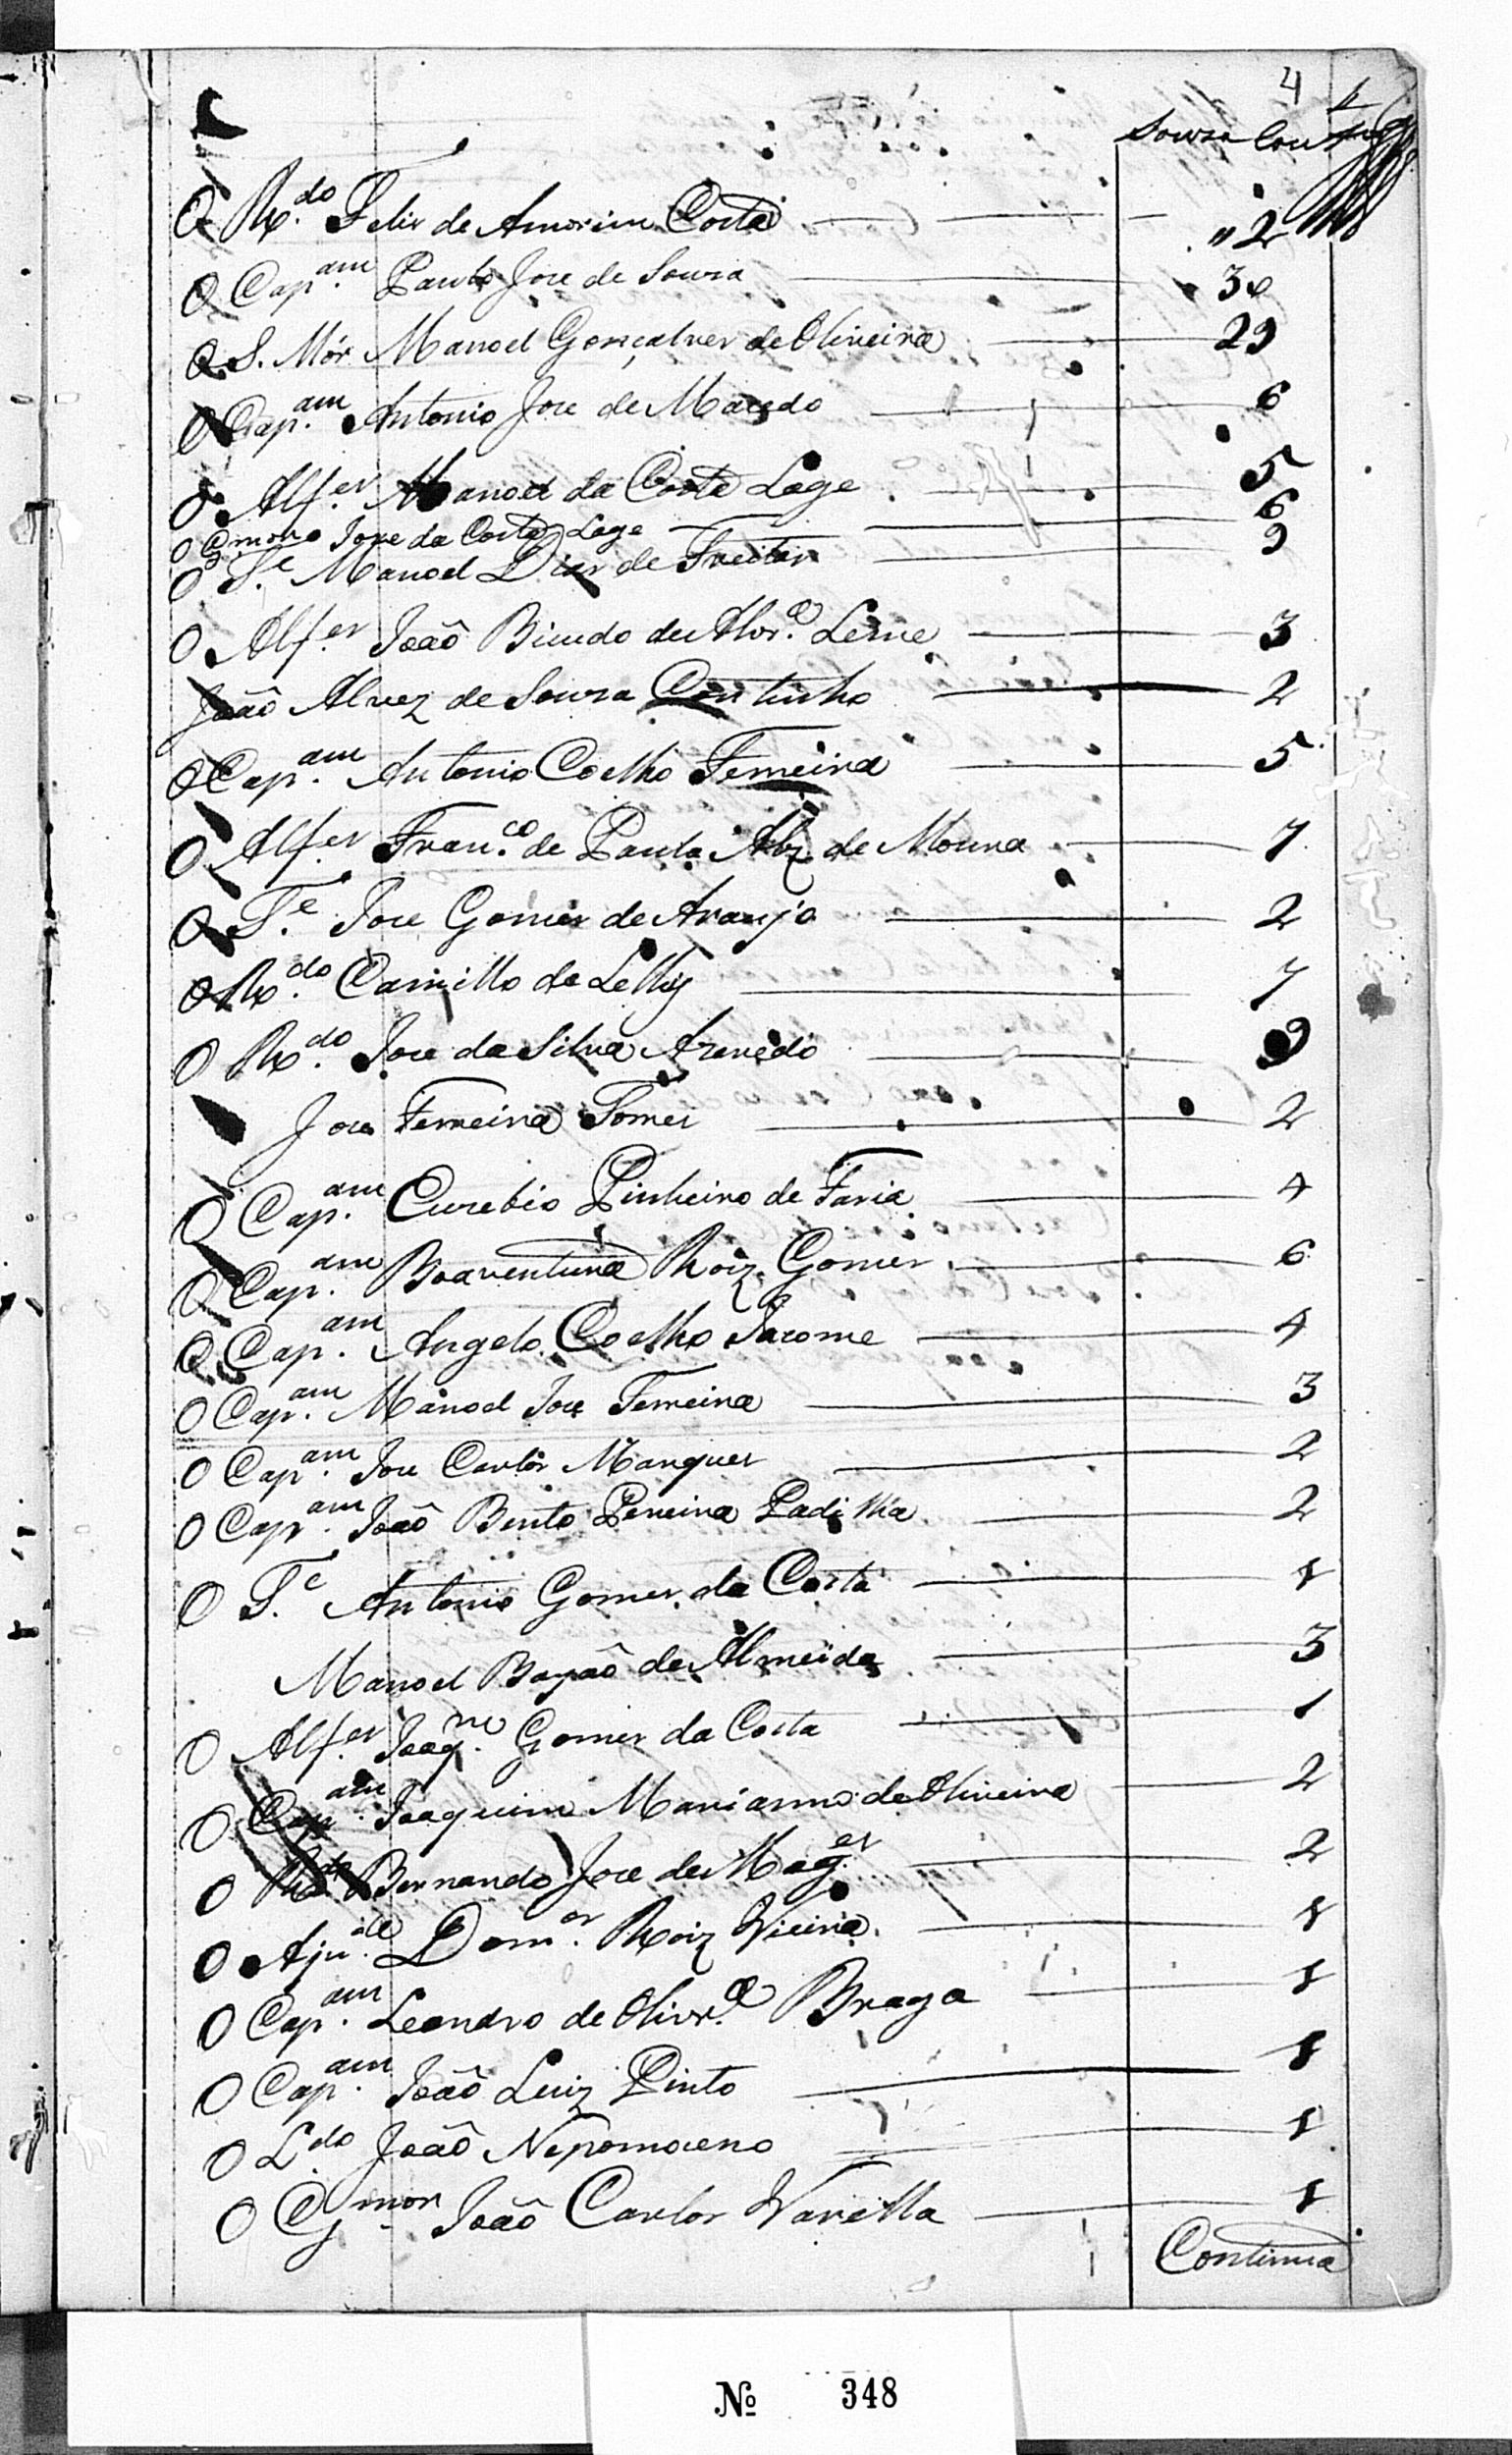 4
Souza Coutinho
O R.do Felix de Amorim Costa 2
O Cap.am Paulo Jose de Souza 30
O S. Mór Manoel Gonçalves de Oliveira 29
O Cap.am Antonio Jose de Macedo 6
O Alf.es Manoel da Costa Lage 5
O G.mor Jose da Costa Lage 6
O T.e Manoel Dias de Freitas 9
O Alf.es João Bicudo de Alvr.a Leme 3
João Alvez de Souza Coutinho 2
O Cap.am Antonio Coelho Ferreira 5
O Alf.es Fran.co de Paula Alz. de Moura 7
O T.e Jose Gomes de Araujo 2
O R.do Camillo de Lellis 7
O R.do Jose da Silva Azevedo 9
Jose Ferreira Tomes 2
O Cap.am Euzebio Pinheiro de Faria 4
O Cap.am Boaventura Roiz Gomes 6
O Cap.am Angelo Coelho Jacome 4
O Cap.am Manoel Jose Ferreira 3
O Cap.am Jose Carlos Marques 2
O Cap.am João Bento Pereira Padilha 2
O T.e Antonio Gomes da Costa 1
Manoel Bayaõ de Almeida 3
O Alf.es Joaq.m Gomes da Costa 1
O Cap.am Joaquim Marianno de Oliveira 2
O R.do Bernardo Jose de Mag.es 2
O Aju.de Dom.os Roiz Vieira 1
O Cap.am Leandro de Olivr.a Braga 1
O Cap.am João Luiz Pinto 1
O L.do João Nepomoceno 1
O G.mor João Carlos Varella 1
Continua
№ 348